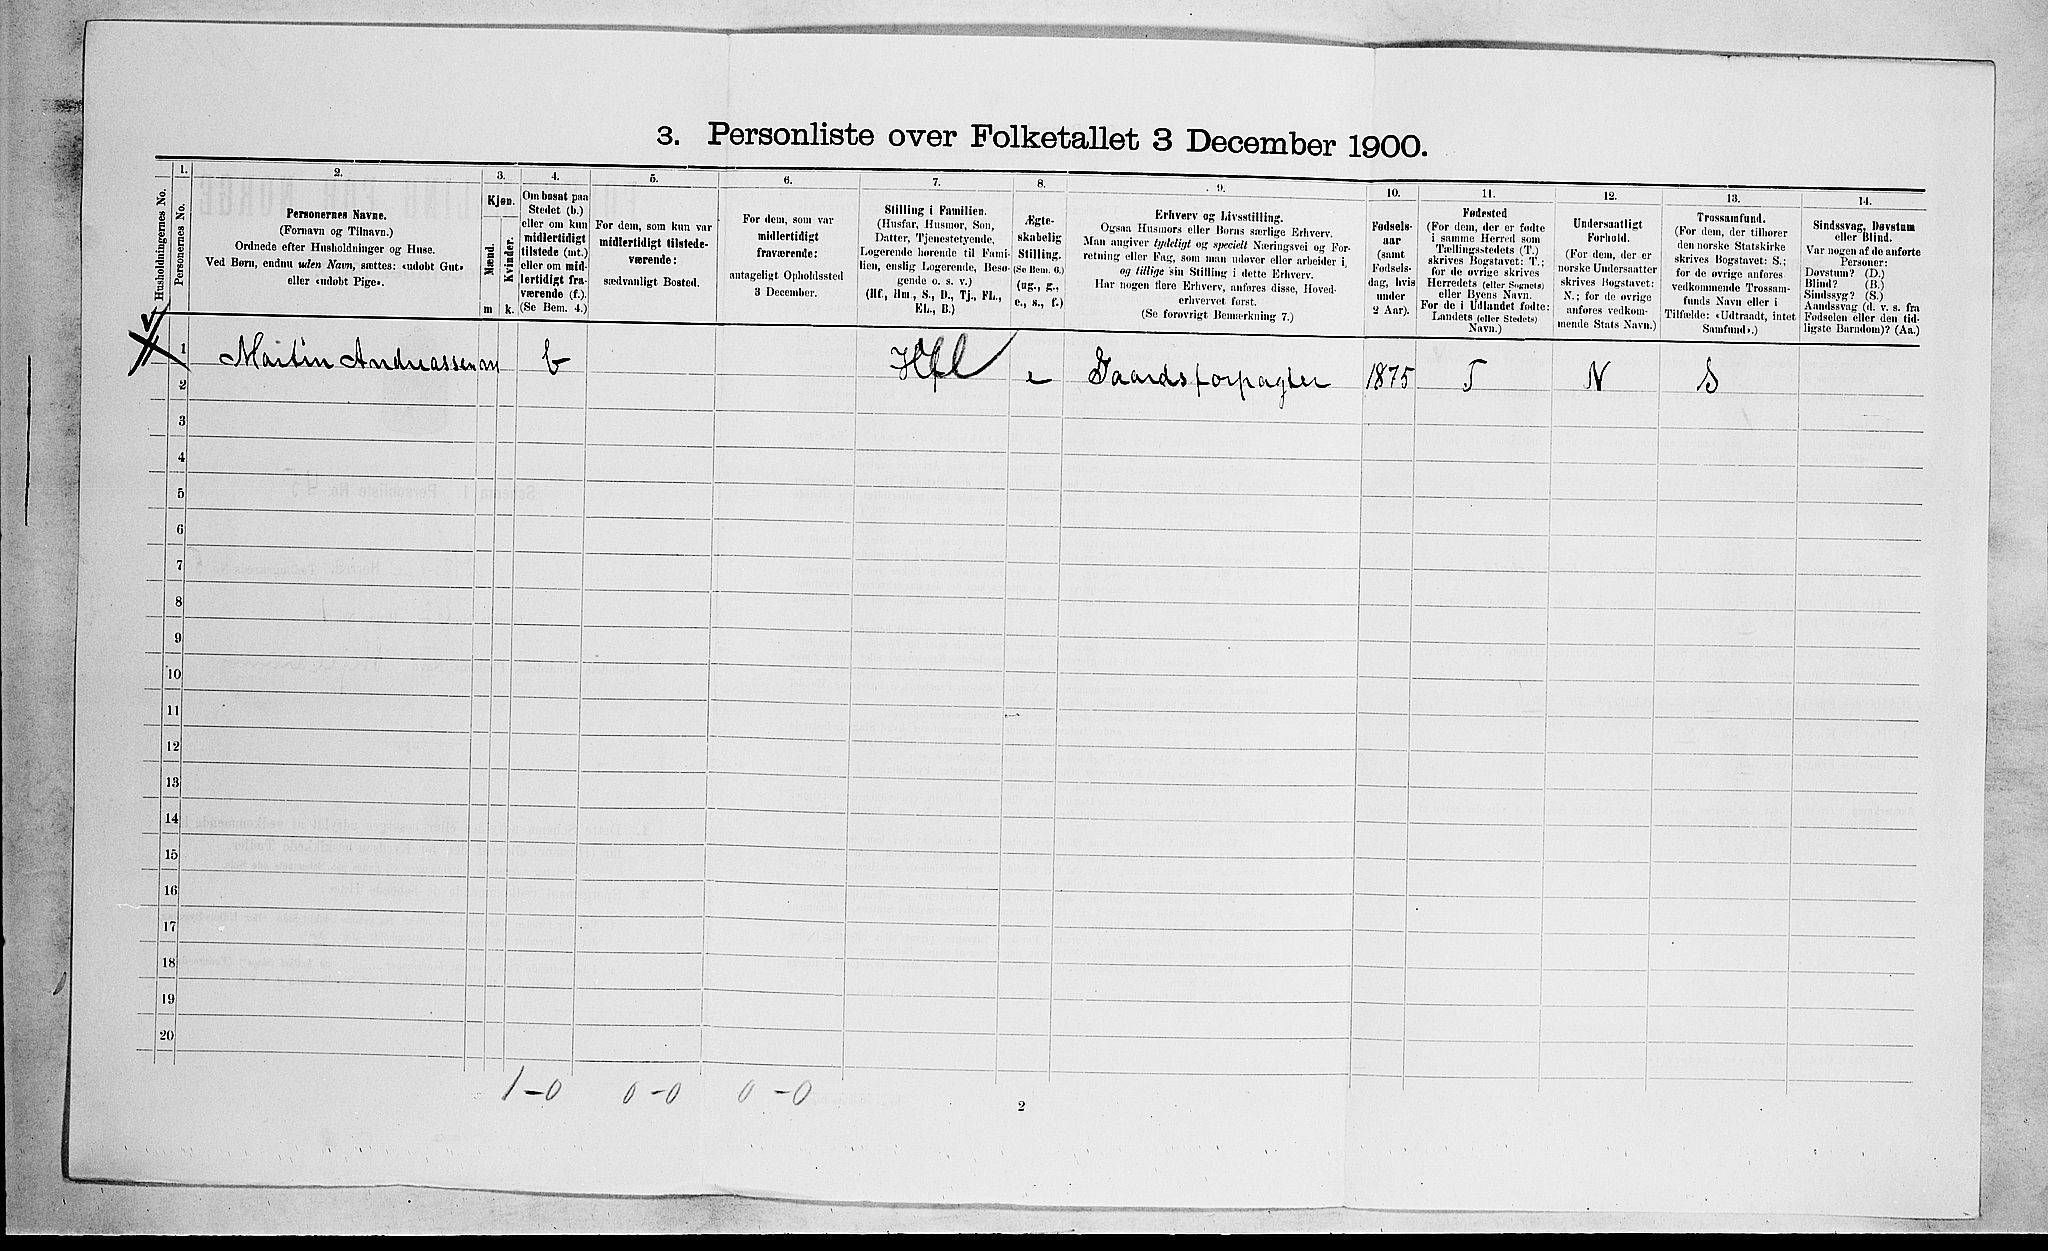 3. Personliste over Folketallet 3 December 1900.
1. 2. 3. 4. 5. 6. 7. 8. 9. 10. 11. 12. 13. 14.
Husholdningernes No.
Personernes No.
Personernes Navne.
(Fornavn og Tilnavn.)
Ordnede efter Husholdninger og Huse.
Ved Børn, endnu uden Navn, sættes: «udøbt Gut»
eller «udøbt Pige».
Kjøn.
Mænd.
Kvinder.
m k.
Om bosat paa
Stedet (b.)
eller om kun
midlertidigt
tilstede (mt.)
eller om mid-
lertidigt fra-
værende (f.).
(Se Bem. 4.)
For dem, som kun var
midlertidigt tilstede-
værende:
sædvanligt Bosted.
For dem, som var
midlertidigt
fraværende:
antageligt Opholdssted
3 December.
Stilling i Familien.
(Husfar, Husmor, Søn,
Datter, Tjenestetyende,
Logerende hørende til Fami-
lien, enslig Logerende, Besø-
gende o. s. v.)
(Hf., Hm., S., D., Tj., FL.,
EL., B.)
Ægte-
skabelig
Stilling.
(Se Bem. 6.)
(ug., g.,
e., s., f.)
Erhverv og Livsstilling.
Ogsaa Husmors eller Børns særlige Erhverv.
Man angiver tydeligt og specielt Næringsvei og For-
retning eller Fag, som man udøver eller arbeider i,
og tillige sin Stilling i dette Erhverv.
Har nogen flere Erhverv, anføres disse, Hoved-
erhvervet først.
(Se forøvrigt Bemærkning 7.)
Fødsels-
aar
(samt
Fødsels-
dag, hvis
under
2 Aar).
Fødested
(For dem, der er fødte
i samme Herred som
Tællingsstedets (T.)
skrives Bogstavet: T.;
for de øvrige skrives
Herredets (eller Sognets)
eller Byens Navn.
For de i Udlandet fødte:
Landets (eller Stedets)
Navn.)
Undersaatligt
Forhold.
(For dem, der er
norske Undersaatter
skrives Bogstavet:
N.; for de øvrige
anføres vedkom-
mende Stats Navn.)
Trossamfund.
(For dem, der tilhører
den norske Statskirke
skrives Bogstavet: S.;
for de øvrige anføres
vedkommende Trossam-
funds Navn eller i
Tilfælde: «Udtraadt, intet
Samfund».)
Sindssvag, Døvstum
eller Blind.
Var nogen af de anførte
Personer:
Døvstum? (D.)
Blind? (B.)
Sindssyg? (S.)
Aandssvag (d. v. s. fra
Fødselen eller den tid-
ligste Barndom)? (Aa.)
1 Martin Andreassen m b Hf e Gaardsforpagter 1875 T N S
2
3
4
5
6
7
8
9
10
11
12
13
14
15
16
17
18
19
20
1-0 0-0 0-0
2